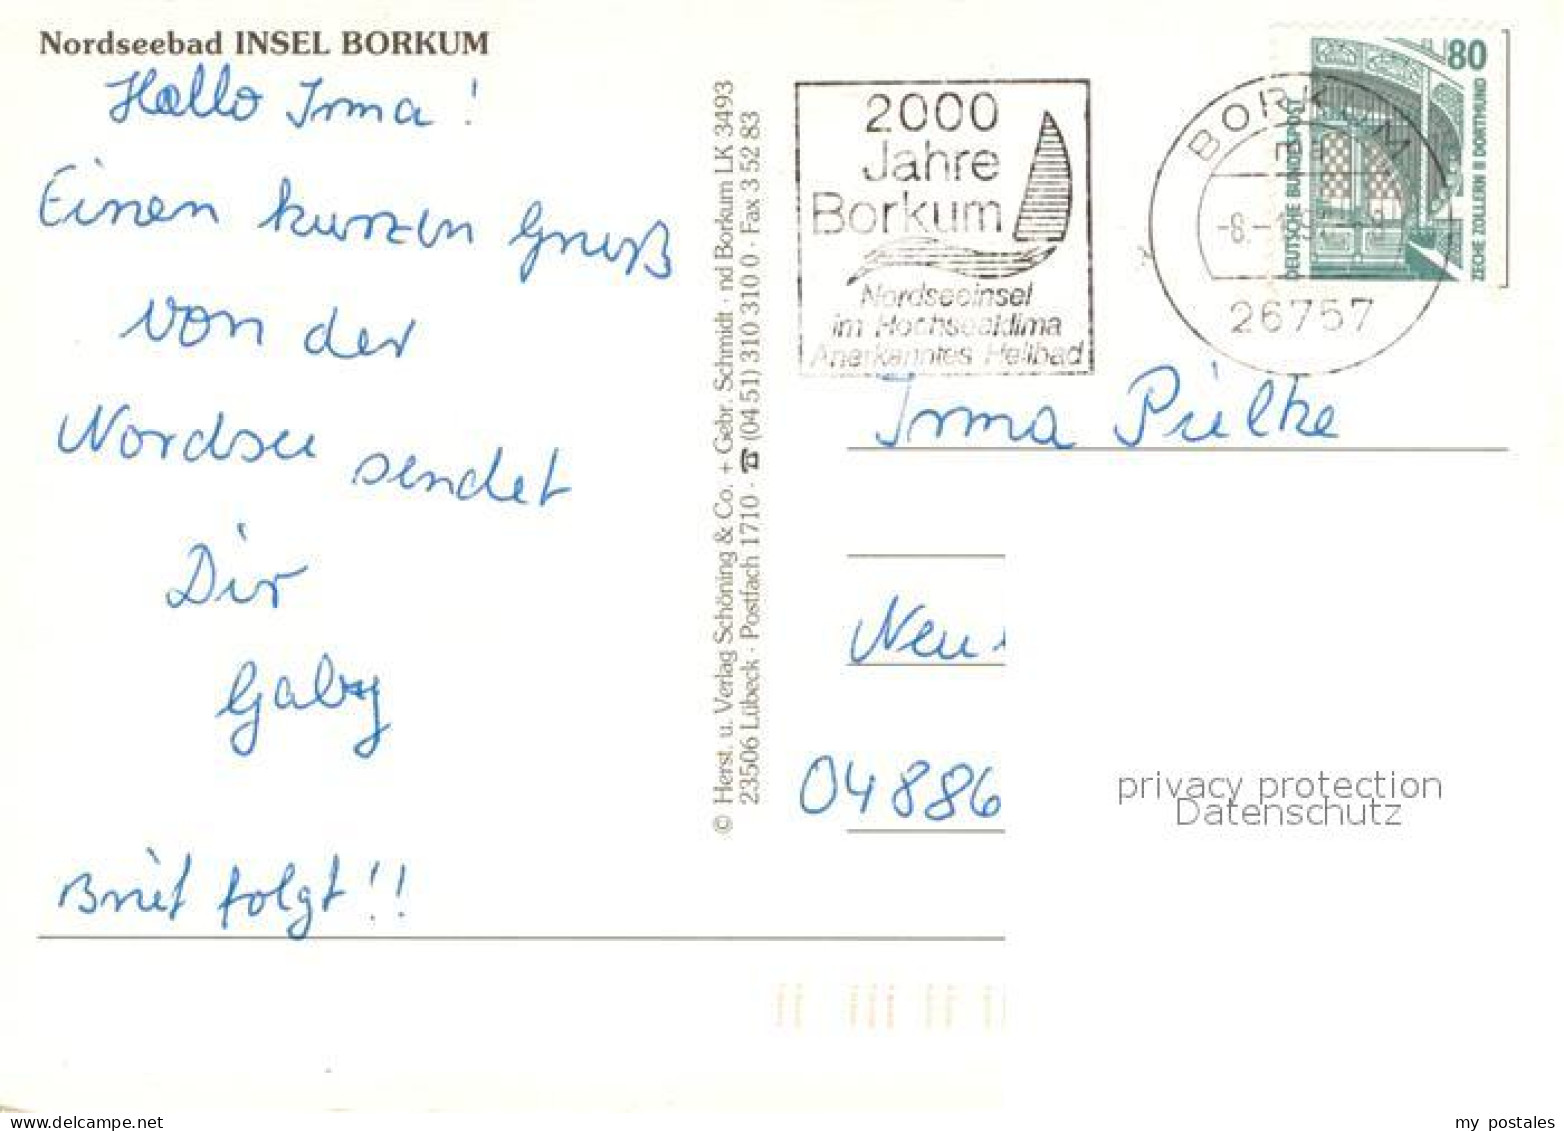 Nordseebad INSEL BORKUM
Hallo Irma!
Einen kurzen Gruß
von der
Nordsee sendet
Dir
Gaby
Brief folgt!!
© Herst. u. Verlag Schöning & Co. + Gebr. Schmidt · nd Borkum LK 3493
23506 Lübeck · Postfach 1710 · ☎ (04 51) 310 310 0 · Fax 3 52 83
2000
Jahre
Borkum
Nordseeinsel
im Hochseeklima
Anerkanntes Heilbad
BORKUM
26757
80
DEUTSCHE BUNDESPOST
ZECHE ZOLLERN II DORTMUND
Irma Pielke
Neu
04886
privacy protection
Datenschutz
my postales